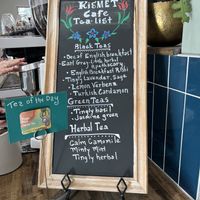 KISMET
Cafe
Tea list
Black Teas
• Decaf English breakfast
• Earl Grey - the herbal
Apothecary
• English Breakfast Rishi
• Tingly Lavender, Sage
• Lemon Verbena
• Turkish Cardamon
Green Teas
• Tingly basil
• Jasmine green
Herbal Tea
Calm Camomile
Minty Mint
Tingly herbal
Tea of the Day